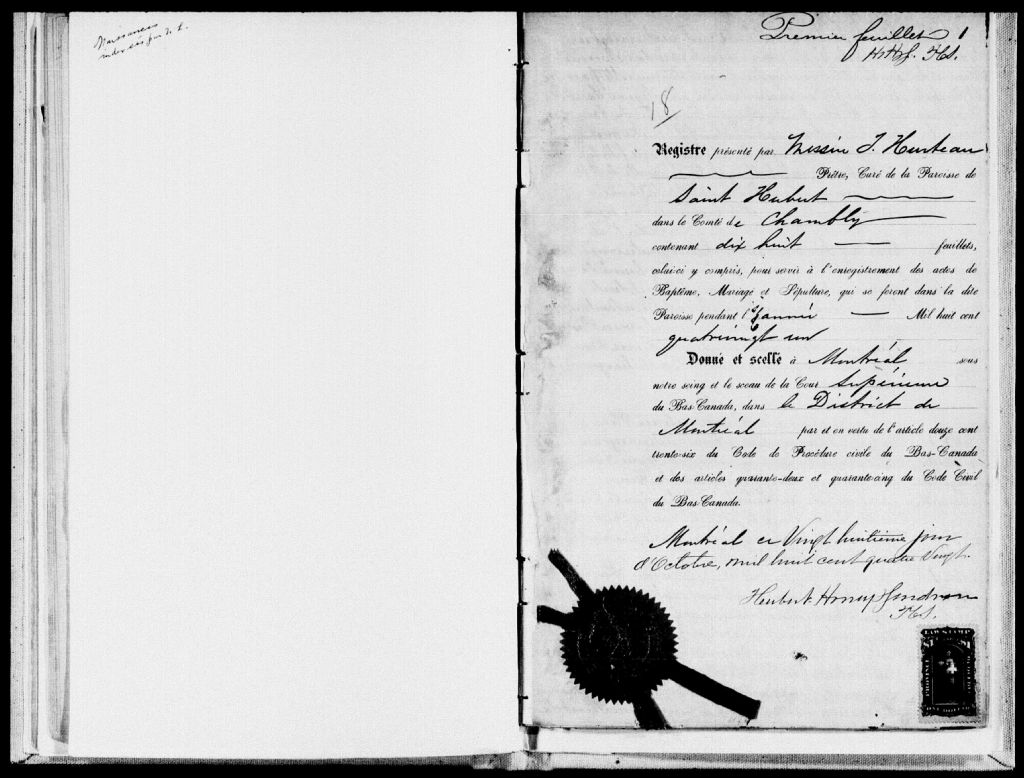 Naissances
indexées par
Premier feuillet 1
H.H.G. HS.
18
Registre présenté par Messire J. Hurteau
Prêtre, Curé de la Paroisse de
Saint Hubert
dans le Comté de Chambly
contenant dix huit feuillets,
celui-ci y compris, pour servir à l'enregistrement des actes de
Baptême, Mariage et Sépulture, qui se feront dans la dite
Paroisse pendant l'année Mil huit cent
quatrevingt un
Donné et scellé à Montréal sous
notre seing et le sceau de la Cour Supérieure
du Bas-Canada, dans le District de
Montréal par et en vertu de l'article douze cent
trente-six du Code de Procédure civile du Bas-Canada
et des articles quarante-deux et quarante-cinq du Code Civil
du Bas-Canada.
Montréal ce Vingt huitième jour
d'Octobre, mil huit cent quatre vingt.
Hubert Honey
LAW STAMP
$1 $1
PROVINCE
ONE DOLLAR